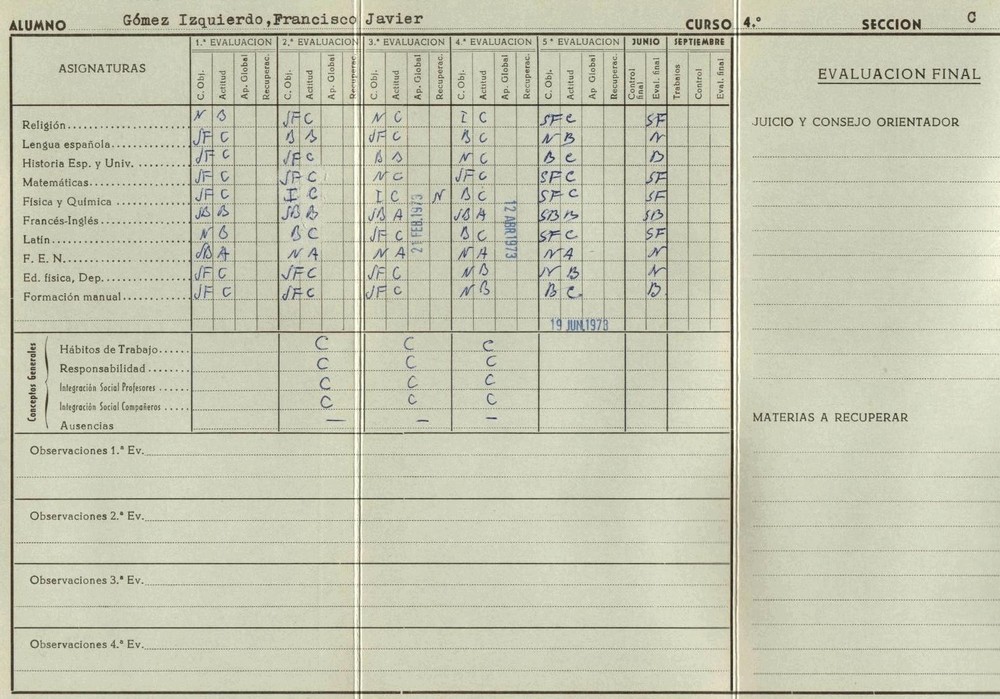 ALUMNO Gómez Izquierdo,Francisco Javier CURSO 4.º SECCION C
ASIGNATURAS 1.ª EVALUACION 2.ª EVALUACION 3.ª EVALUACION 4.ª EVALUACION 5.ª EVALUACION JUNIO SEPTIEMBRE
C. Obj. Actitud Ap. Global Recuperac. C. Obj. Actitud Ap. Global Recuperac. C. Obj. Actitud Ap. Global Recuperac. C. Obj. Actitud Ap. Global Recuperac. C. Obj. Actitud Ap Global Recuperac. Control final Eval. final Trabajos Control Eval. final
EVALUACION FINAL
Religión N B SF C N C I C SF C SF
JUICIO Y CONSEJO ORIENTADOR
Lengua española SF C B B SF C B C N B N
Historia Esp. y Univ. SF C SF C B B N C B C B
Matemáticas SF C SF C N C SF C SF C SF
Física y Química SF C I C I C N B C SF C SF
Francés-Inglés SB B SB B SB A SB A SB B SB
Latín N B B C SF C B C SF C SF
F. E. N. SB A N A N A N A N A N
Ed. física, Dep. SF C SF C SF C N B N B N
Formación manual SF C SF C SF C N B B C B
21 FEB.1973
12 ABR.1973
19 JUN.1973
Conceptos Generales
Hábitos de Trabajo C C C
Responsabilidad C C C
Integración Social Profesores C C C
Integración Social Compañeros C C C
Ausencias — — —
MATERIAS A RECUPERAR
Observaciones 1.ª Ev.
Observaciones 2.ª Ev.
Observaciones 3.ª Ev.
Observaciones 4.ª Ev.